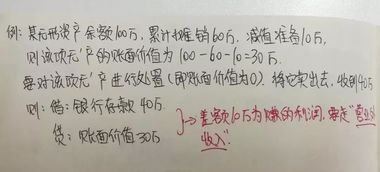 例：某无形资产余额100万，累计摊销60万，减值准备10万
则该项无'产的账面价值为 100-60-10=30万.
要对该项无'产进行处置（即账面价值为0）. 将它卖出去，收到40万
则：借：银行存款 40万
贷：账面价值30万
→差额10万为赚的利润，要走"营业外
收入".